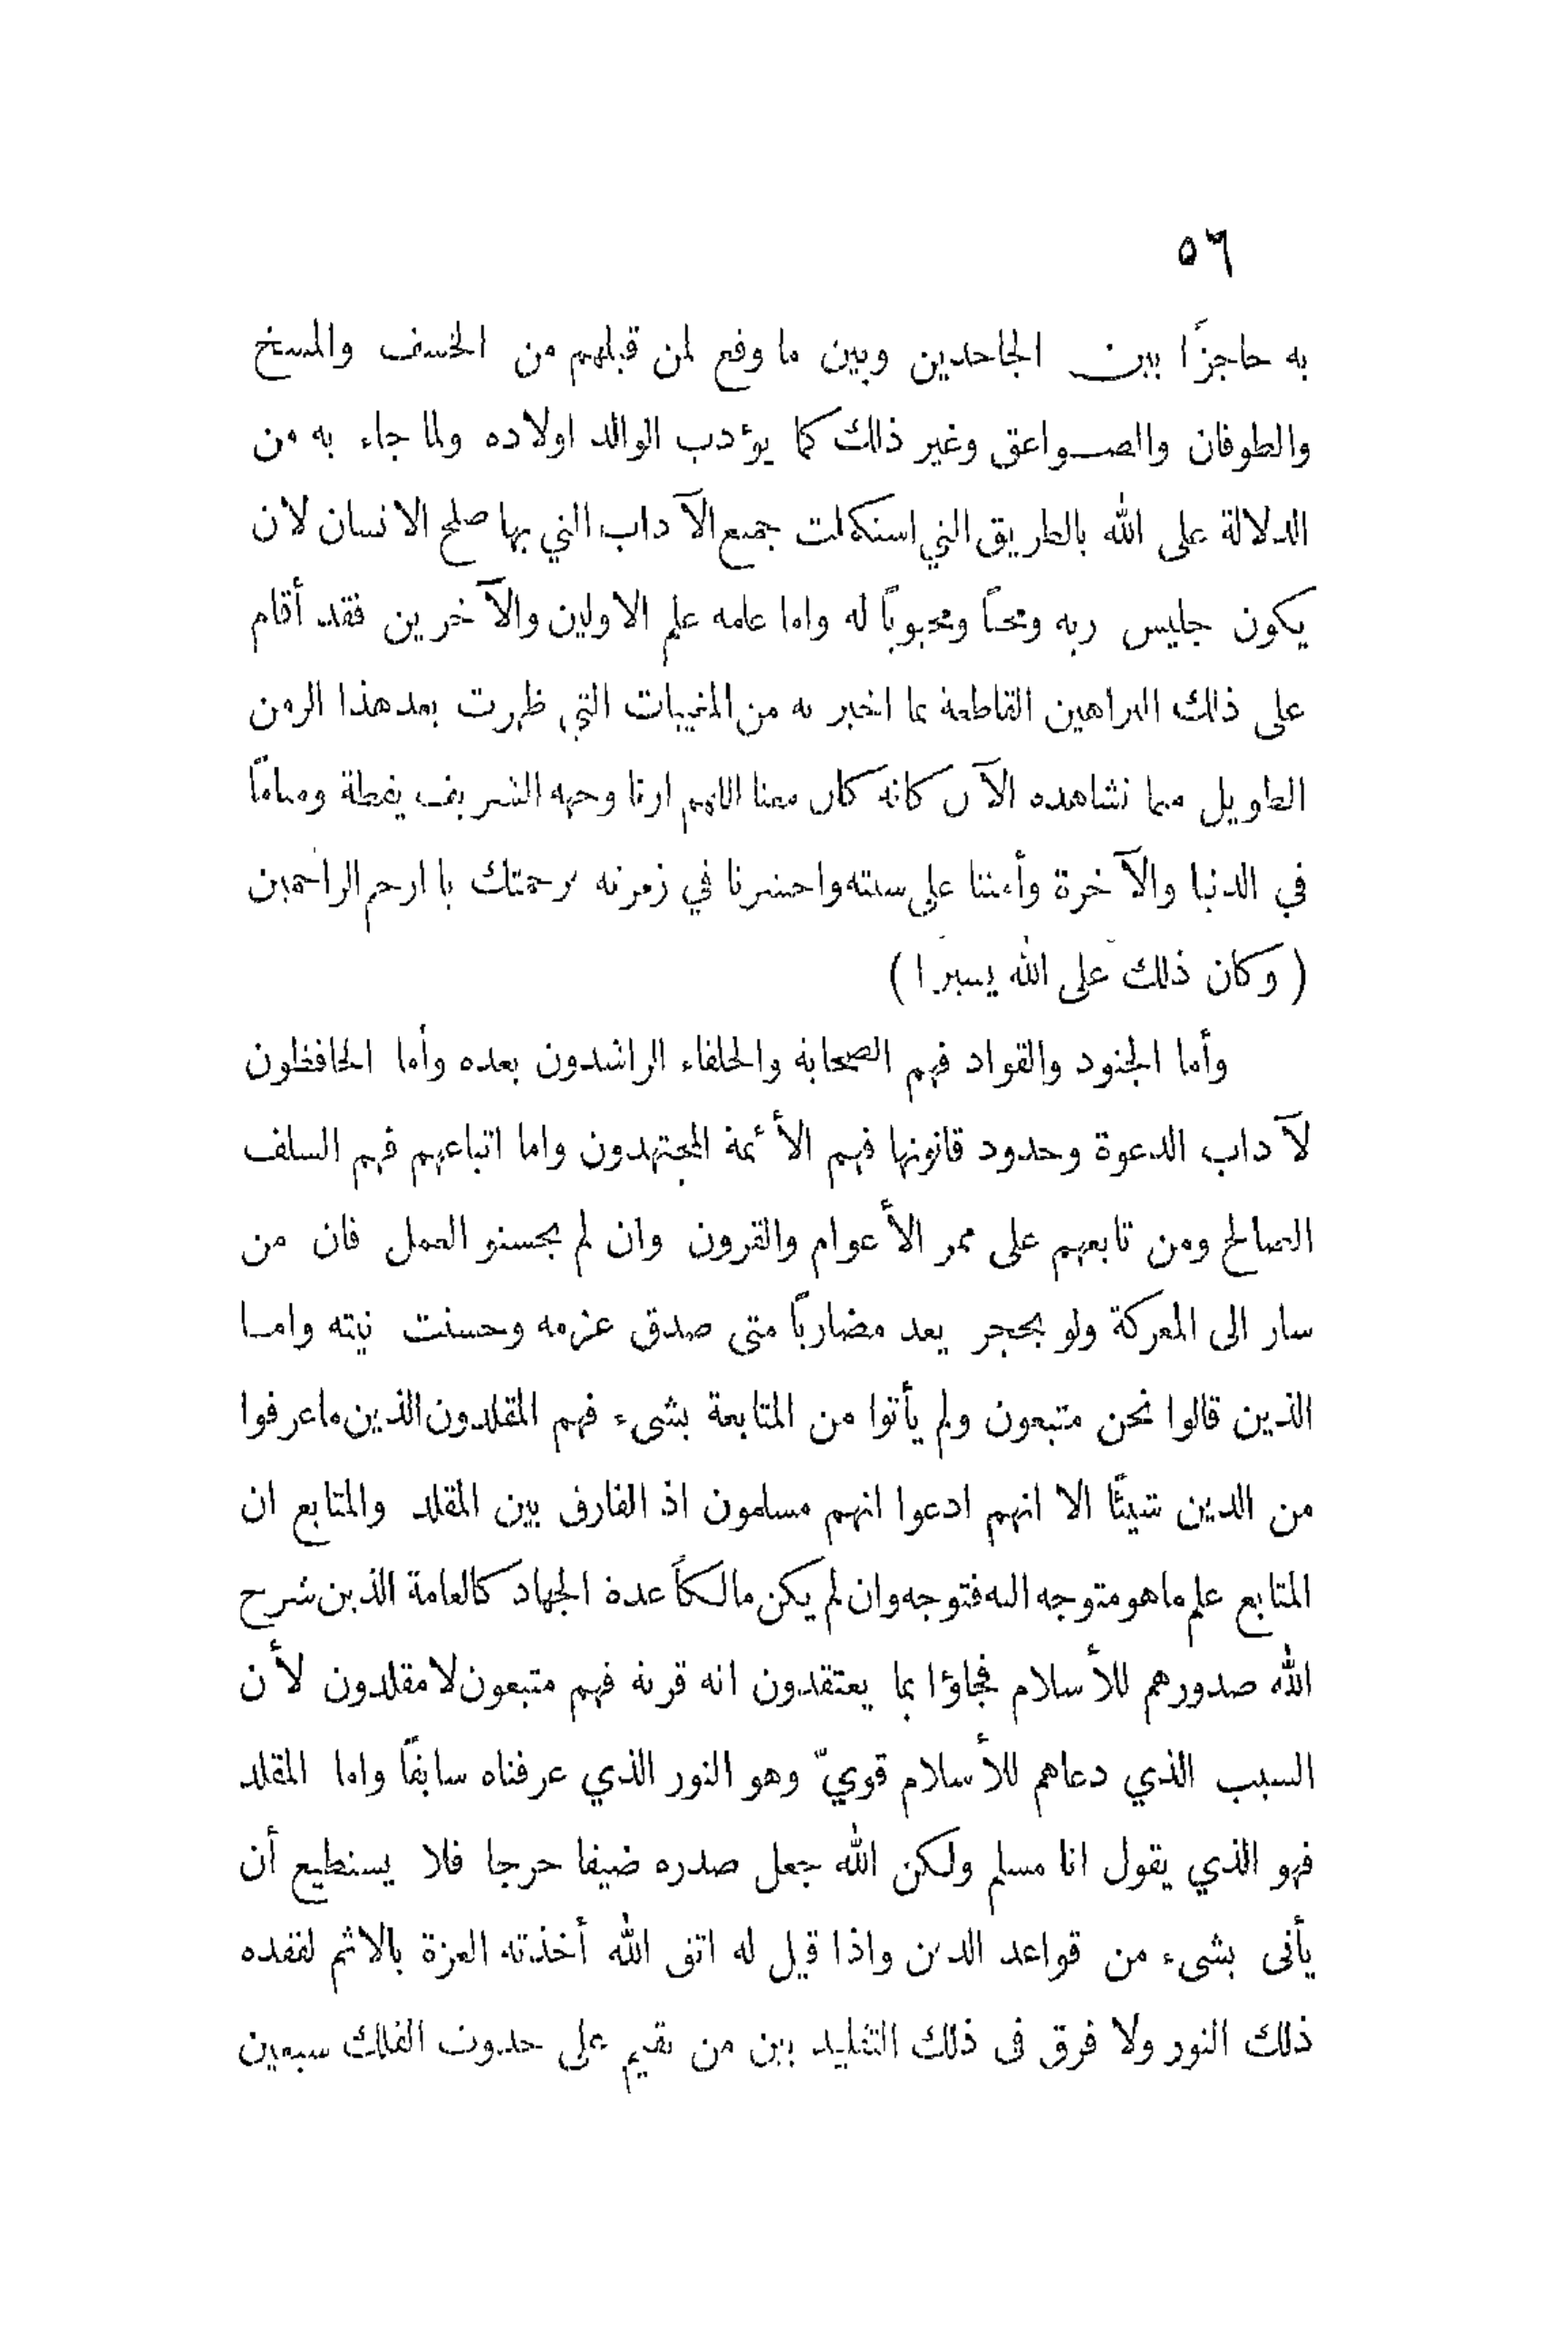 ٥٦
به حاجزًا بين الجاحدين وبين ما وقع لمن قبلهم من الخسف والمسخ
والطوفان والصواعق وغير ذلك كما يؤدب الوالد اولاده ولما جاء به من
الدلالة على الله بالطريق التي استكملت جميع الآداب التي بها صلح الانسان لان
يكون جليس ربه ومحبًا ومحبوبًا له واما علمه علم الاولين والآخرين فقد أقام
على ذلك البراهين القاطعة بما اخبر به من المغيبات التي ظهرت بعد هذا الزمن
الطويل مما نشاهده الآن كانه كان معنا اللهم ارنا وجهه الشريف يقظة ومنامًا
في الدنيا والآخرة وأمتنا على سنته واحشرنا في زمرته برحمتك يا ارحم الراحمين
( وكان ذلك على الله يسيرا )
وأما الجنود والقواد فهم الصحابة والخلفاء الراشدون بعده وأما الحافظون
لآداب الدعوة وحدود قانونها فهم الأئمة المجتهدون واما اتباعهم فهم السلف
الصالح ومن تابعهم على ممر الأعوام والقرون وان لم يحسنو العمل فان من
سار الى المعركة ولو بحجر يعد مضاربًا متى صدق عزمه وحسنت نيته واما
الذين قالوا نحن متبعون ولم يأتوا من المتابعة بشىء فهم المقلدون الذين ماعرفوا
من الدين شيئًا الا انهم ادعوا انهم مسلمون اذ الفارق بين المقلد والمتابع ان
المتابع علم ماهو متوجه اليه فتوجه وان لم يكن مالكاً عدة الجهاد كالعامة الذين شرح
الله صدورهم للأسلام فجاؤا بما يعتقدون انه قربة فهم متبعون لا مقلدون لأن
السبب الذي دعاهم للأسلام قويّ وهو النور الذي عرفناه سابقًا واما المقلد
فهو الذي يقول انا مسلم ولكن الله جعل صدره ضيقا حرجا فلا يستطيع أن
يأتى بشىء من قواعد الدين واذا قيل له اتق الله أخذته العزة بالاثم لفقده
ذلك النور ولا فرق فى ذلك التقليد بين من يقيم على حدوث الفلك سبعين